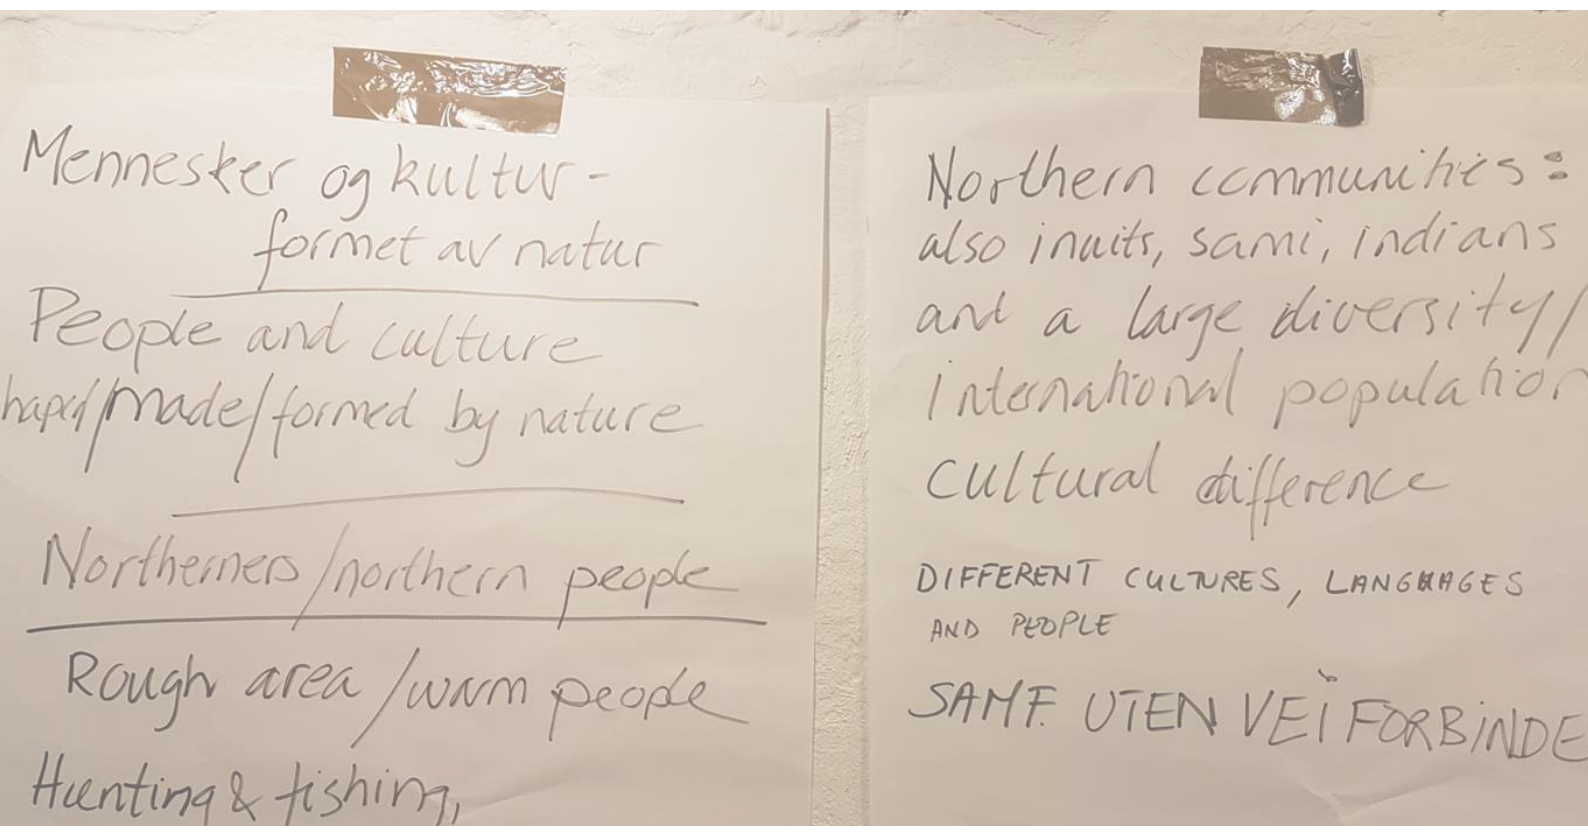 Mennesker og kultur -
formet av natur
People and culture
haped/made/formed by nature
Northerners/northern people
Rough area/warm people
Hunting & fishing,
Northern communities:
also inuits, sami, indians
and a large diversity/
international population
Cultural difference
DIFFERENT CULTURES, LANGUAGES
AND PEOPLE
SAMF. UTEN VEIFORBINDE